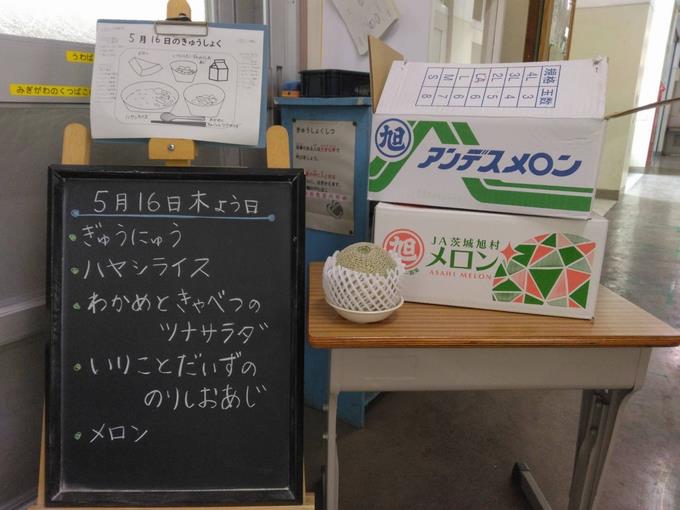 5月16日のきゅうしょく
ハヤシライス
5月16日木よう日
ぎゅうにゅう
ハヤシライス
わかめときゃべつの
ツナサラダ
いりことだいずの
のりしおあじ
メロン
きゅうしょくしつ
みぎがわのくつばこ
うわば
規格 4L 3L 2L L M S
玉数 3 4 5 6 7 8
旭
アンデスメロン
旭
JA茨城旭村
メロン
ASAHI MELON